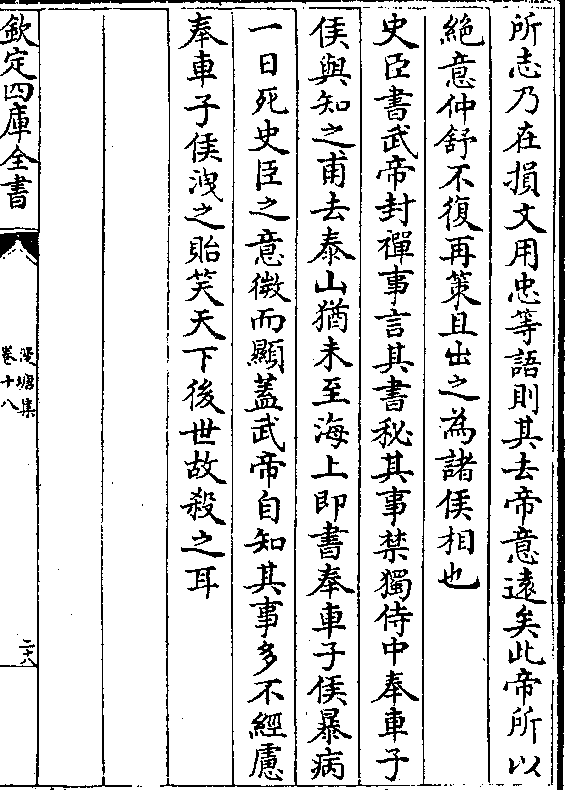 所志乃在損文用忠等語則其去帝意遠矣此帝所以
絶意仲舒不復再策且出之為諸侯相也
史臣書武帝封禪事言其書秘其事禁獨侍中奉車子
侯與知之甫去泰山猶未至海上即書奉車子侯暴病
一日死史臣之意微而顯蓋武帝自知其事多不經慮
奉車子侯洩之貽笑天下後世故殺之耳
欽定四庫全書
漫塘集
卷十八
二六